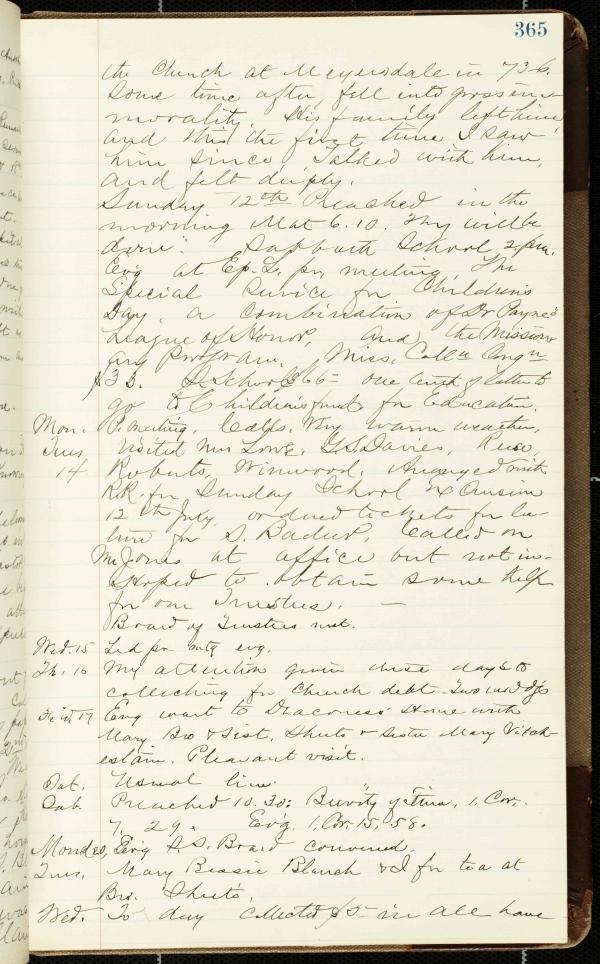 365
the Church at Meyersdale in 73-6.
Some time after fell into gross im-
morality. His family left him
and this the first time I saw
him since. Talked with him,
and felt deeply.
Sunday 12th Preached in the
morning Mat 6.10. Thy will be
done". Sabbath School 2 p.m.
Evg at Ep. L. pr. meeting. The
Special Service for Children's
Day, a combination of Dr Payne's
League of Honor, and the Mission
ary Program. Miss. Coll
$33. S. School $66= one tenth of latter to
go to Children's fund for Education.
Mon. P. meeting. Calls. Very warm weather,
Tues. Visited Mrs Lowe, Davies,
14 Roberts, Winwood, Arranged with
R.R. for Sunday School Excursion
12th July, ordered tickets for lec-
ture for S. Called on
Mr Jones at office but not in.
Hoped to obtain some help
for our Trustees. —
Board of Trustees met.
Wed. 15 Led pr mtg evg.
Th. 16 My attention given these days to
collecting for Church debt.
Frid. 17 Evg went to Deaconess Home with
Mary Bro & Sist. Sheets & Sister Mary
Pleasant visit.
Sat. Usual line.
Sab. Preached 10.30: Brevity of Time, 1. Cor.
7. 29. Evg. 1. Cor. 15. 58.
Mond 20, Evg S.S. Board convened.
Tues. Mary Bessie Blanch & I for tea at
Bro. Sheets.
Wed. To day collected $5 — in all have